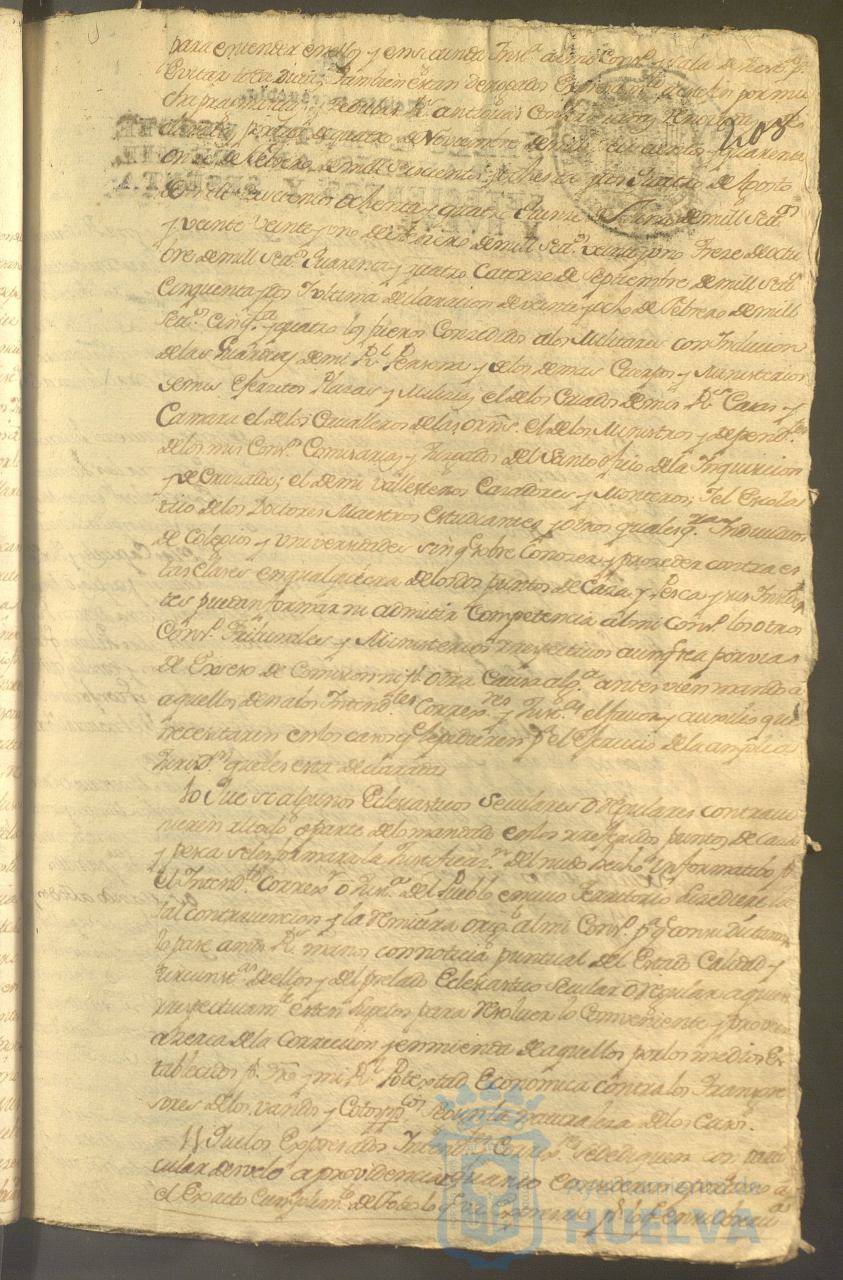 para entender en ellos y en segunda Inst.ª a mi Cons.º
evitar toda duda también eran derogados
antiguas
208
de quatro de Noviembre de mill seiscientos y quarenta
once de Febrero de mill seiscientos y ochenta y tres quatro de Agosto
de mill seiscientos ochenta y quatro de mill set.ˢ
y veinte veinte y uno de Henero de mill set.ˢ veinte y uno trese de octu
bre de mill set.ˢ quarenta y quatro catorze de Septiembre de mill set.ˢ
cinquenta y dos y ultima declaracion de veinte y ocho de Febrero de mill
set.ˢ cinq.ᵗᵃ y quatro los fueros concedidos a los Militares con Inclusion
de las Guardias de mi R.ˡ Persona y de los demas Cuerpos y Ministerios
de mis Exercitos Plazas y Milicias el de los Criados de mis R.ˢ Casas y
Camara el de los Cavalleros de las orñs. el de los Ministros y depend.ᵗᵉˢ
de los mis Cons.ˢ Comisarias y Juzgados del Santo oficio de la Inquisicion
y de Cruzada; el de mi Vallesteros Cazadores y Monteros; y el Escolas
tico de los Doctores Maestros Estudiantes y otros qualesq.ʳᵃ Individuos
de Colegios y Universidades sin q.ᵉ sobre conozer y proceder contra es
tas clases en qualquiera de los dos puntos de Caza y Pesca y sus Inciden
tes puedan formar ni admitir Competencia al mi Cons.º los otros
Cons.ˢ Tribunales y Ministerios respectivos aunq.ᵉ sea por via
de Exceso de Comision ni p.ʳ otra Causa alg.ª antes vien mando a
aquellos den a los Intend.ᵗᵉˢ Correx.ʳᵉˢ y Just.ªˢ el favor y auxilio que
necesitaren en los casos q.ᵉ le pidieren p.ª el exercicio de la amplia
Jurisd.ⁿ que les esta declarada
10 Que si algunos Eclesiasticos Seculares o regulares contravi
nieren al todo o parte de lo mandado en los referidos puntos de Caza
y pesca se les formara la Justificaz.ⁿ del nudo hecho informatibo p.ʳ
el Intend.ᵗᵉ Correx.ʳ o Just.ª del Pueblo en cuio territorio subcediere la
tal contravencion y la remitira orig.ˡ al mi Cons.º p.ª q.ᵉ con su dictamen
lo pase a mis R.ˢ manos con noticia puntual del Estado Calidad y
circunst.ªˢ de ellos y del prelado Eclesiastico Secular o regular a quien
respectivam.ᵗᵉ esten sujetos para resolver lo combeniente y proveer
azerca de la correccion y enmienda de aquellos por los medios es
tablecidos p.ʳ dro y mi R.ˡ Potestad Economica contra los transgre
sores de los vandos y Cotos segun la naturaleza de los casos.
11 Que los Expresados Intend.ᵗᵉˢ Correx.ʳᵉˢ se dediquen con parti
cular desvelo a providenciar quanto consideren oportuno a
el Exacto Cumplim.ᵗᵒ de todo lo q.ᵉ va
Ayuntamiento de
HUELVA